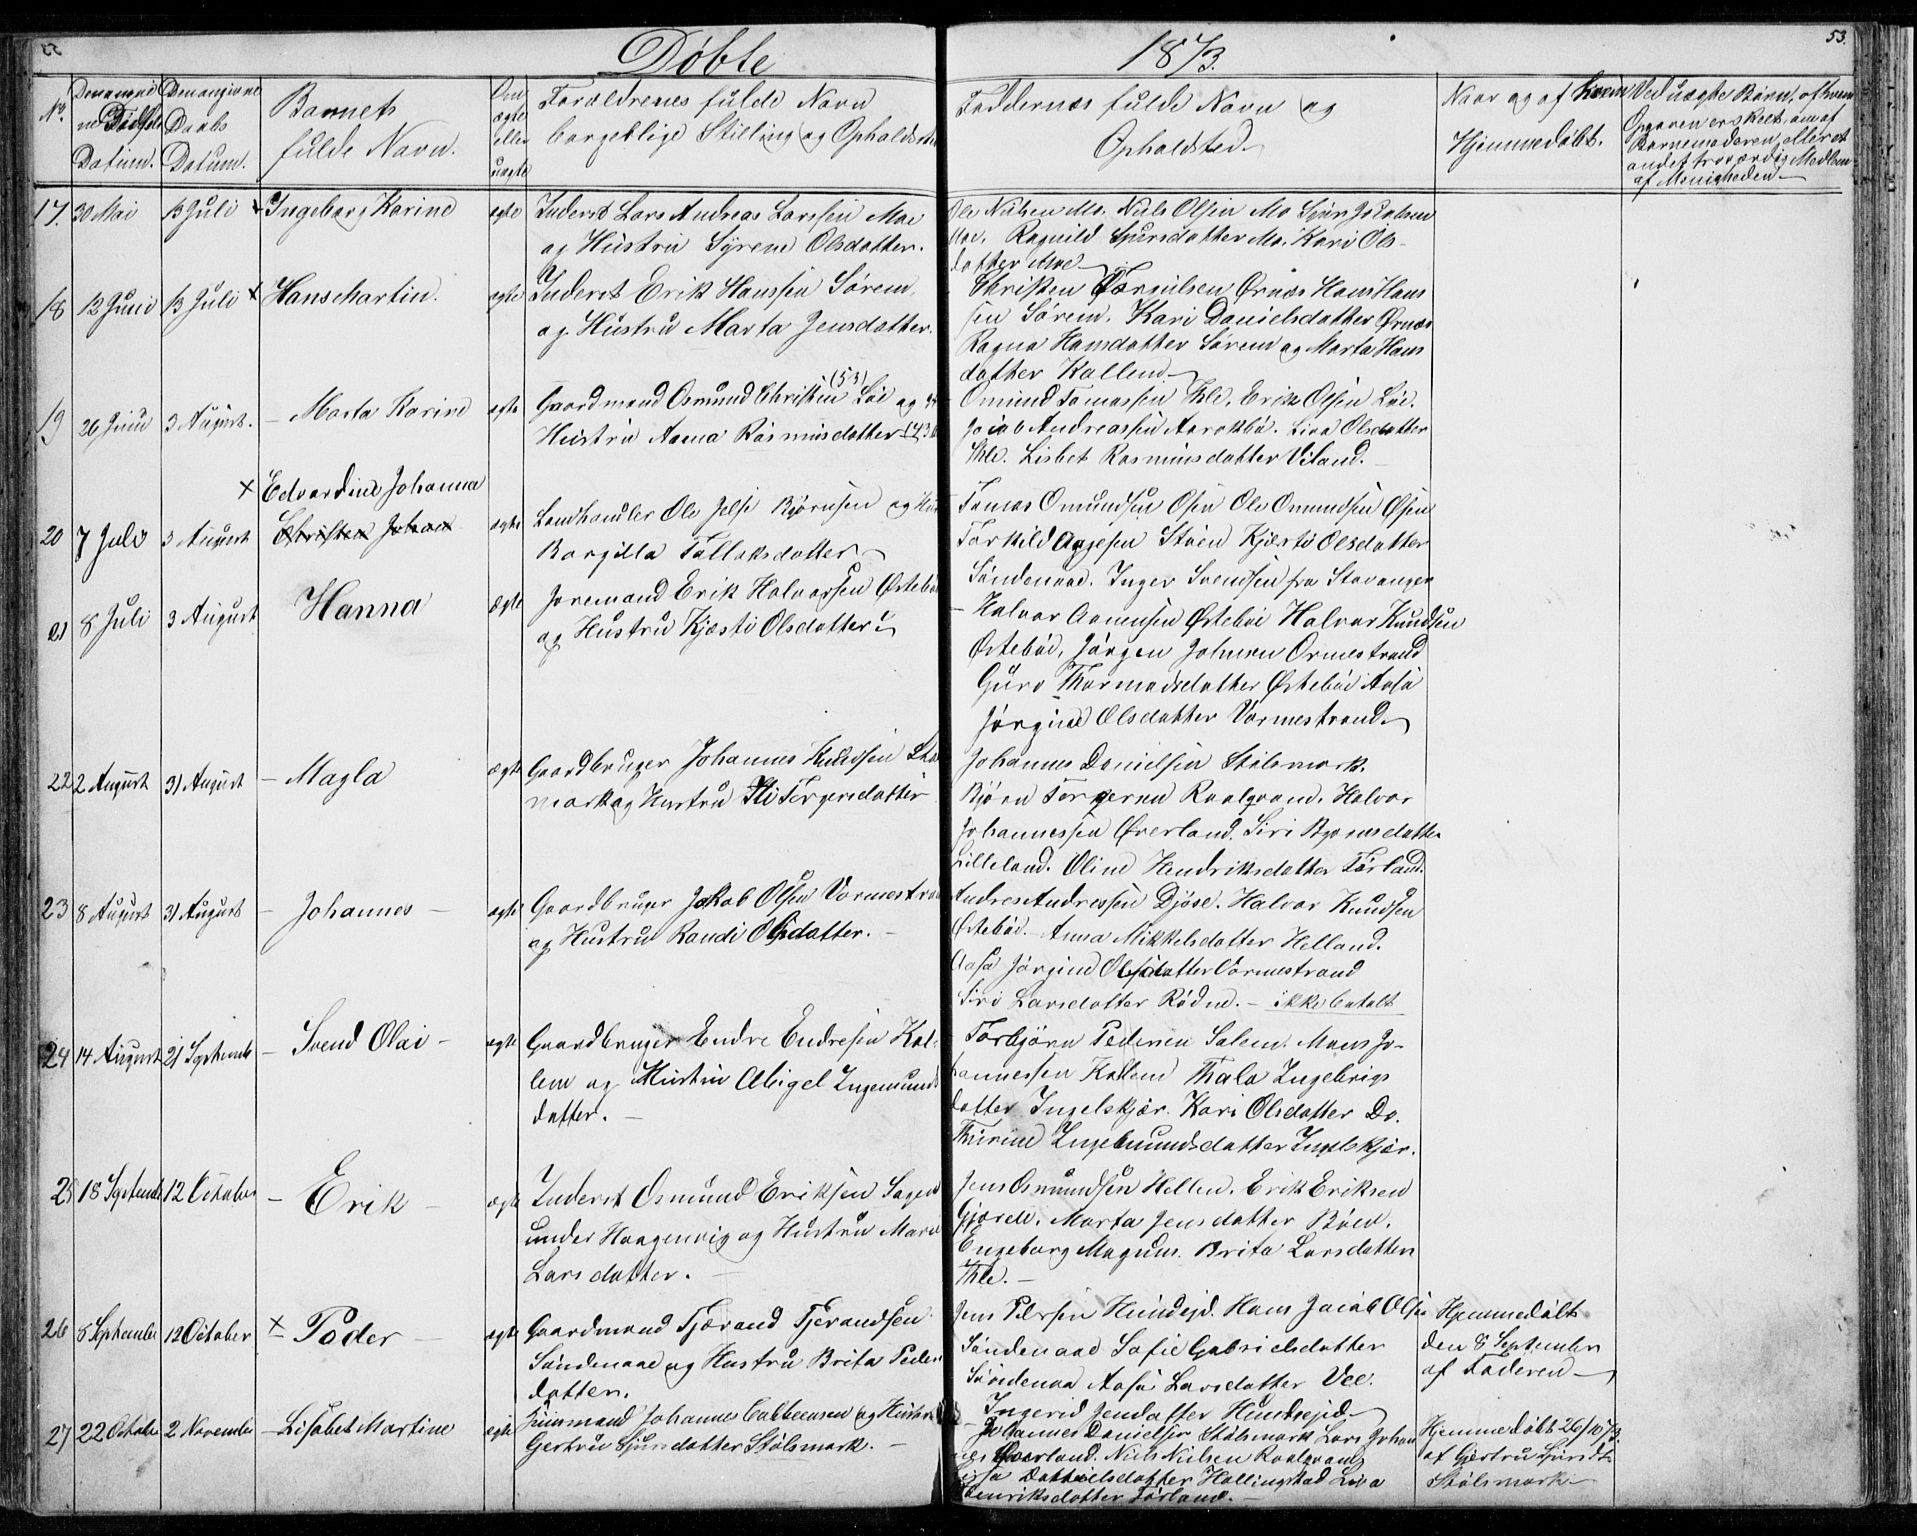 Døbte 1873.
53.
No. Barnets fulde Navn. Forældrenes fulde Navn borgerlige Stilling og Opholdssted
Faddernes fulde Navn og Opholdsted.
Naar og af hvem Hjemmedøbt.
17. 30 Mai 13 Juli Ingeborg Karine ægte Inderst Lars Andreas Larssen Moe
og Hustru Syrene Olsdatter.
Ole Nilsen Mo. Niels Olsen Mo
Moe. Ragnild Sjursdatter Mo. Kari Ols-
datter Moe
18 12 Juni 13 Juli x Hans Martin. ægte Inderst Erik Hanssen Sørem,
og Hustru Marta Jensdatter.
Ørnæs Hans Hans
sen Sørem. Kari Danielsdatter Ørnæs
Ragna Hansdatter Sørem og Marta Hans
datter Kallem
19 26 Juni 3 August. - Marta Karine ægte Gaardmand Osmund Christen (53) Løe og
Hustru Anna Rasmusdatter
Omund Tomassen Thle. Erik Olsen Løe.
Jacob Andreassen Aarekbø. Lisa Olsdatter
Thle. Lisbet Rasmusdatter Viland.
x Edvardine Johanna
20 7 Juli 3 August Christen Johan ægte Landhandler Ole Bjørnsen og
Bargilla Tollaksdatter
Tomas Omundsen Øsen Ole Omundsen Øsen
Torkild Aagesen Stuen Kjærsti Olsdatter
Søndenaae. Inger Svendsen fra Stavanger
21 8 Juli 3 August Hanna ægte Erik Halvorsen Østebø
og Hustru Kjæsti Olsdatter
- Halvor Aamensen Østebøe Halvor Knudsen
Østebøe, Jørgen Johnsen Ormestrand
Guro Thormodsdatter Østebøe Aasa
Jørgine Olsdatter Vormestrand
22 2 August 31 August - Magla ægte Gaardbruger Johannes Knudsen Støls
mark og Hustru Torgersdatter
Johannes Danielsen Stølsmark.
Bjørn Torgersen Raalvand. Halvor
Johannessen Øverland. Siri Bjørnsdatter
Lilleland. Oline Hendriksdatter Førland.
23 8 August 31 August - Johannes - ægte Gaardbruger Jakob Olsen Vormestrand
og Hustru Randi Olsdatter. -
Andres Andressen Djøse. Halvor Knudsen
Østebøe. Anna Mikkelsdatter Helland.
Aasa Jørgine Olsdatter Vormestrand
Siri Larsdatter Rødne. - ikke betalt
24 14 August 21 September - Svend Olai - ægte Gaardbruger Endre Endresen Kal-
lem og Hustru Abigel Ingemunds
datter. -
Torbjørn Pedersen Salem. Mons Jo-
hannessen Kallem Thala Ingebrigs
datter Ingelskjær. Kari Olsdatter Do.
Thirine Ingebmundsdatter Ingelskjær.
25 18 September 12 October - Erik - ægte Inderst Osmund Eriksen Sagen
under Haagenvig og Hustru Mari
Larsdatter. -
Jens Osmundsen Hellen. Erik Eriksen
Gjorde. Marta Jensdatter Bøen.
Engeborg Magnus. Brita Larsdatter
Thle. -
26 8 September 12 October x Peder - ægte Gaardmand Tjærand Tjerandsen
Søndenaae og Hustru Brita Peders
datter.
Jens Pedersen Hundsejd. Hans Jacob Olsen
Søndenaae Sofie Gabrielsdatter
Søndenaa Aasa Larsdatter Vee.
Ingerid Jensdatter Hundsejd
Hjemmedøbt
den 8 September
af Faderen
27 22 October 2 November - Lisabet Martine ægte Huusmand Johannes Cabbensen og Hustru
Gjertru Sjursdatter Stølsmark. -
Johannes Danielsen Stølsmark Lars Johan
Øverland. Niels Nielsen Raalvand
Danielsdatter Hallingstad Lisa
Henriksdatter Førland. -
Hjemmedøbt 26/10 73
af Gjertru Sjursdt.
Stølsmark